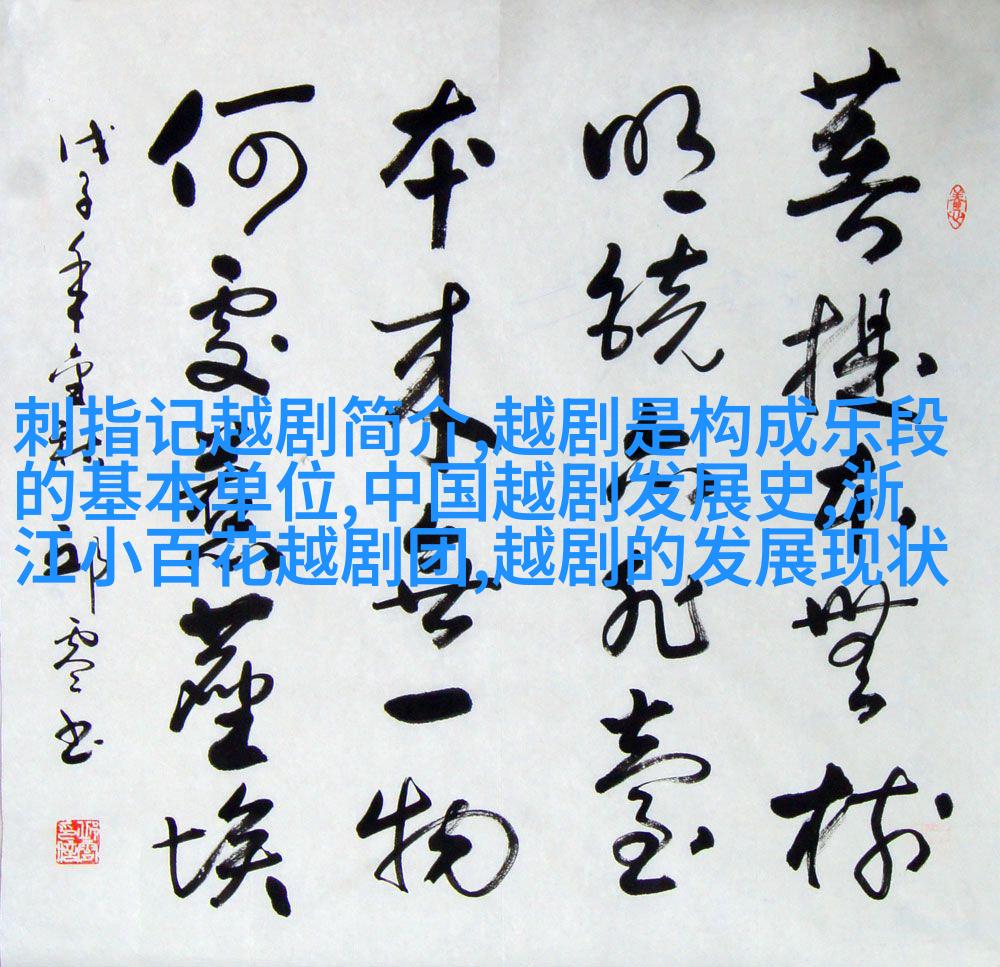 刺指记越剧简介,越剧是构成乐段
的基本单位,中国越剧发展史,浙
江小百花越剧团,越剧的发展现状
菩提本無樹
明鏡亦非臺
本来無一物
何處惹塵埃
戊子年